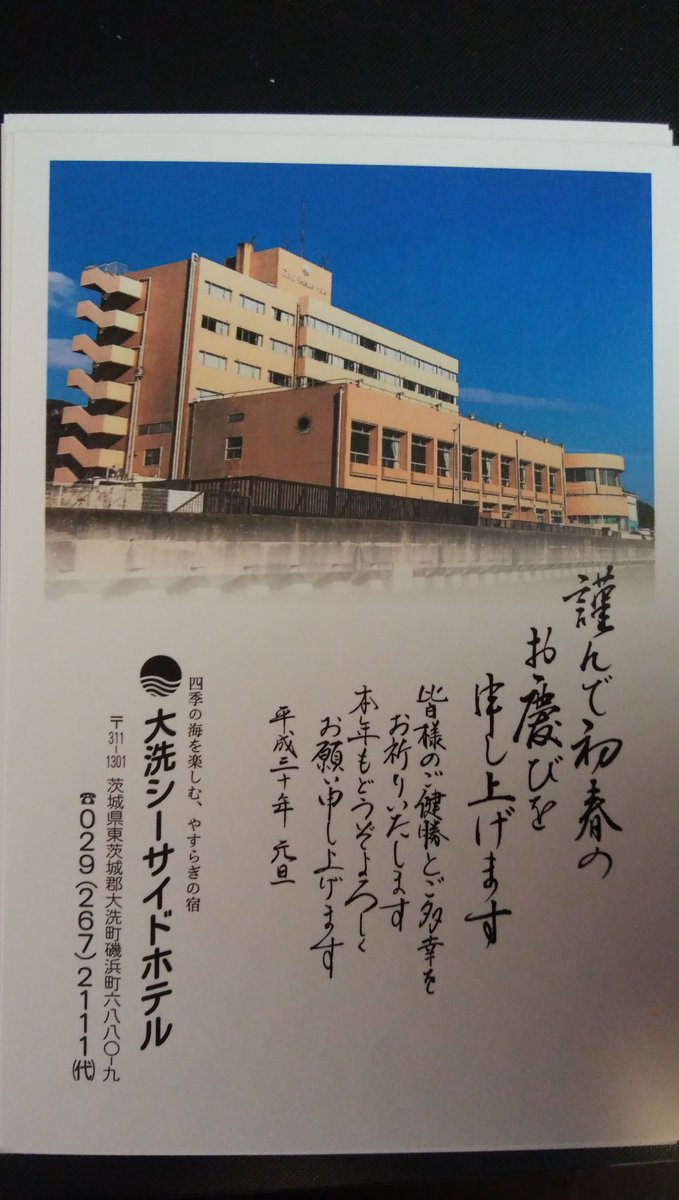 謹んで初春の
お慶びを
申し上げます
皆様のご健勝とご多幸を
お祈りいたします
本年もどうぞよろしく
お願い申し上げます
平成三十年 元旦
四季の海を楽しむ、やすらぎの宿
大洗シーサイドホテル
〒311-1301 茨城県東茨城郡大洗町磯浜町六八八〇-九
☎029(267)2111(代)